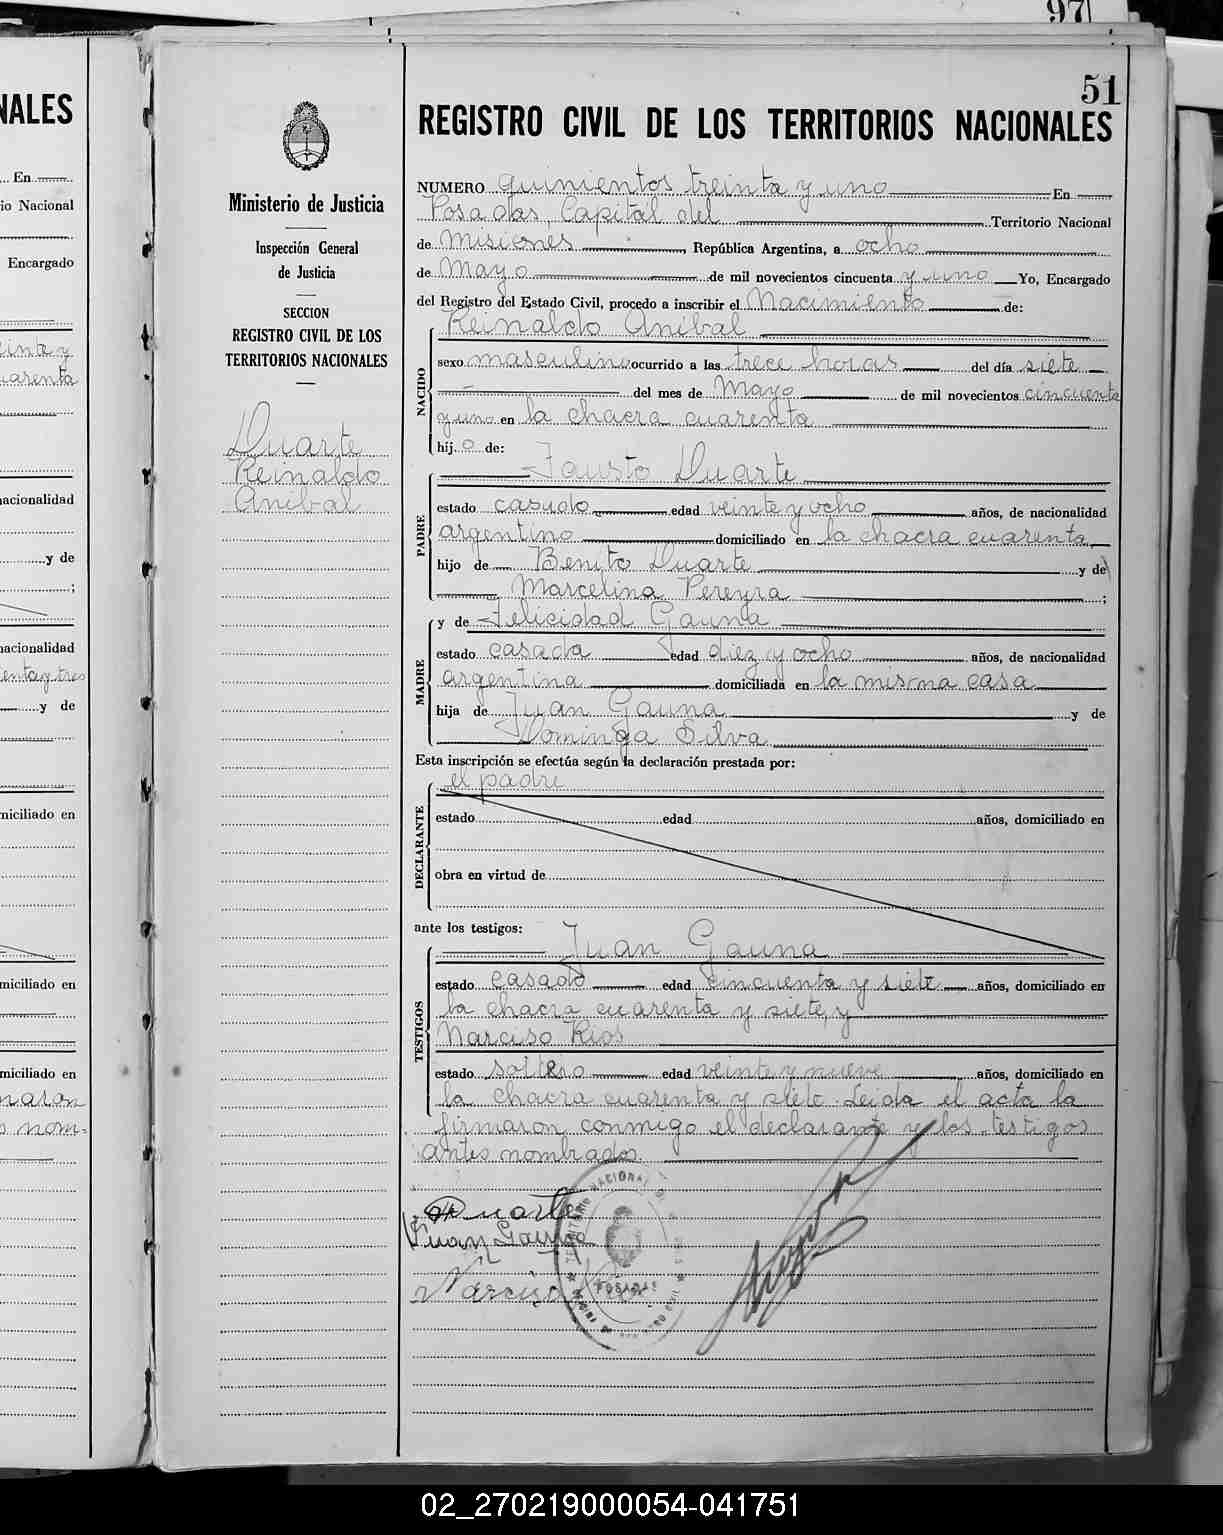 97
51
NALES
REGISTRO CIVIL DE LOS TERRITORIOS NACIONALES
Ministerio de Justicia
Inspección General
de Justicia
SECCION
REGISTRO CIVIL DE LOS
TERRITORIOS NACIONALES
Duarte
Reinaldo
Anibal
NUMERO quinientos treinta y uno En
Posadas, Capital del Territorio Nacional
de Misiones, República Argentina, a ocho
de Mayo de mil novecientos cincuenta y uno Yo, Encargado
del Registro del Estado Civil, procedo a inscribir el Nacimiento de:
NACIDO
Reinaldo Anibal
sexo masculino ocurrido a las trece horas del día siete
del mes de Mayo de mil novecientos cincuenta
y uno en la chacra cuarenta
hijo de:
PADRE
Fausto Duarte
estado casado edad veinte y ocho años, de nacionalidad
argentino domiciliado en la chacra cuarenta
hijo de Benito Duarte y de
Marcelina Pereyra ;
MADRE
y de Felicidad Gauna
estado casada edad diez y ocho años, de nacionalidad
argentina domiciliada en la misma casa
hija de Juan Gauna y de
Dominga Silva
Esta inscripción se efectúa según la declaración prestada por:
DECLARANTE
el padre
estado edad años, domiciliado en
obra en virtud de
ante los testigos:
TESTIGOS
Juan Gauna
estado casado edad cincuenta y siete años, domiciliado en
la chacra cuarenta y siete, y
Narciso Rios
estado soltero edad veinte y nueve años, domiciliado en
la chacra cuarenta y siete. Leida el acta la
firmaron conmigo el declarante y los testigos
antes nombrados.
Duarte
Juan Gauna
Narciso
POSADAS
En
io Nacional
Encargado
cuarenta
nacionalidad
y de
;
nacionalidad
enta y tres
y de
niciliado en
niciliado en
niciliado en
maron
s nom=
02_270219000054-041751